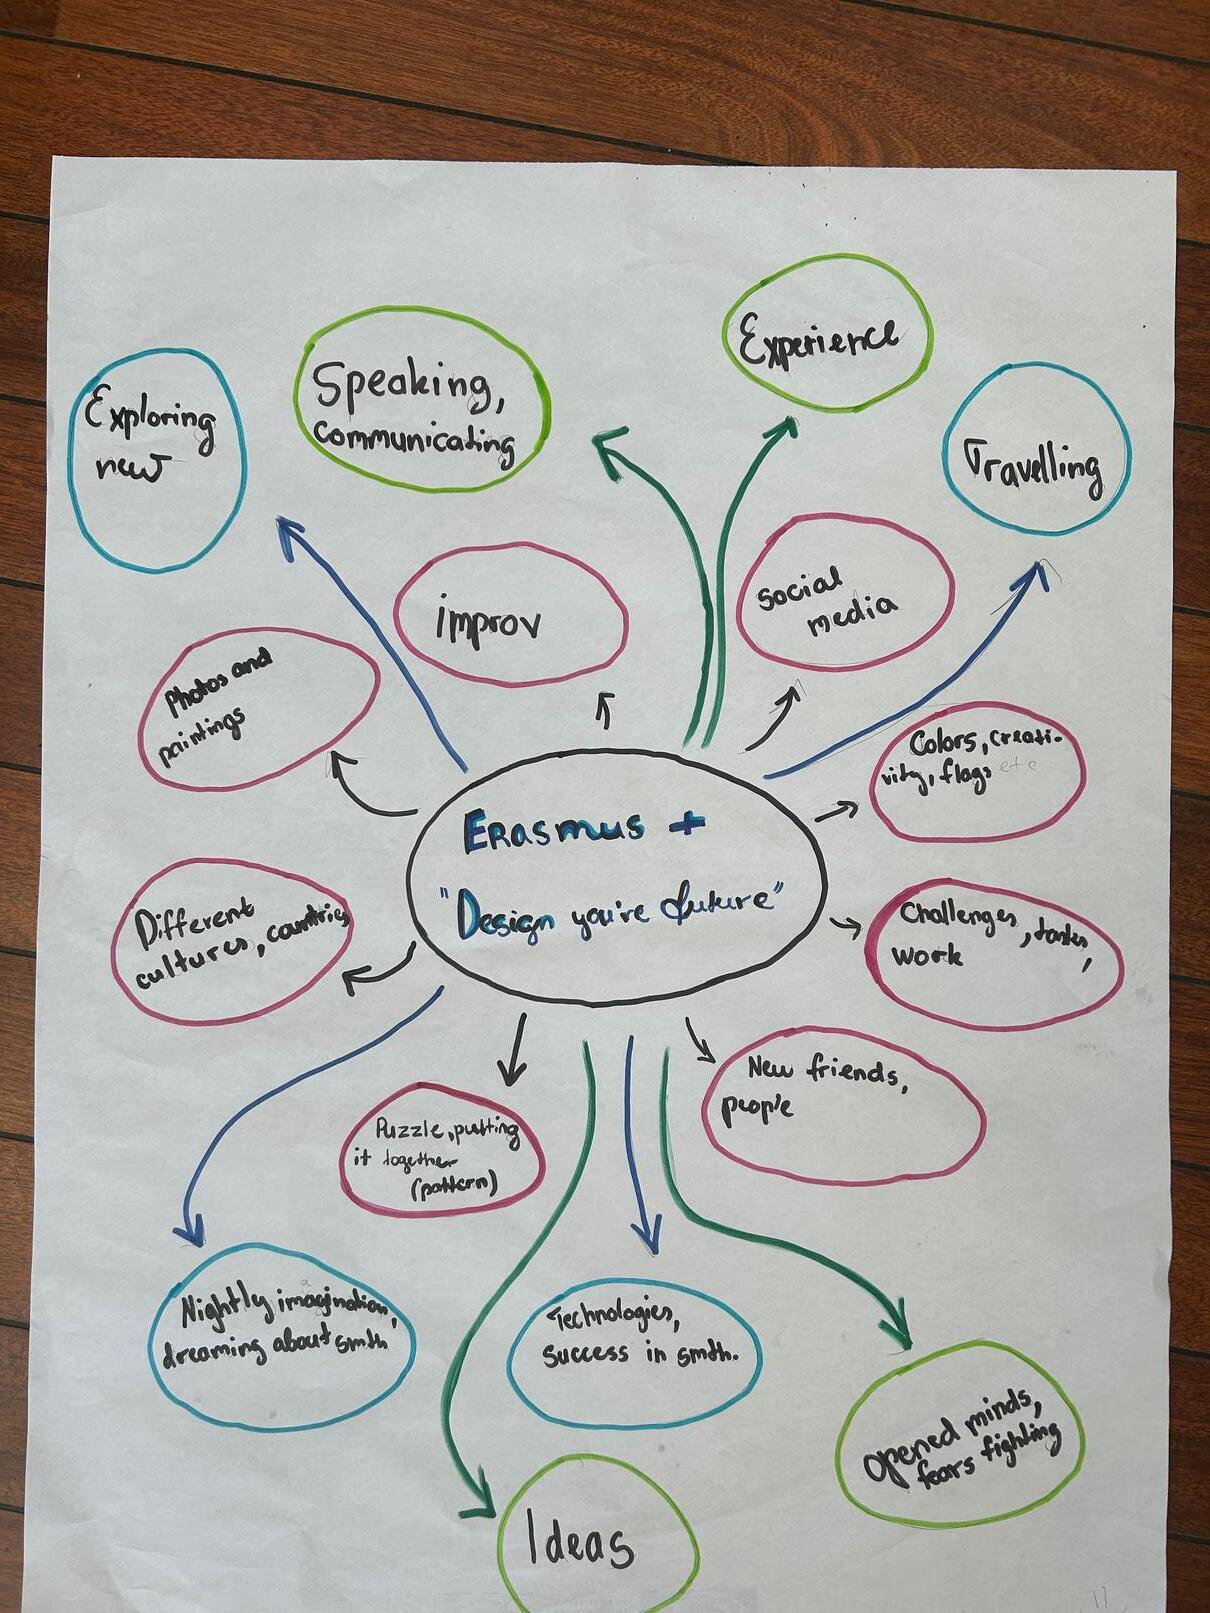 Experience
Speaking,
communicating
Exploring
new
Travelling
improv
social
media
Photos and
paintings
Colors, creati-
vity, flags etc
Erasmus +
"Design you're future"
Different
cultures, countries
Challenges, tasks,
work
New friends,
people
Puzzle, putting
it together
(pattern)
Nightly imagination,
dreaming about smth
Technologies,
success in smth.
Opened minds,
fears fighting
Ideas